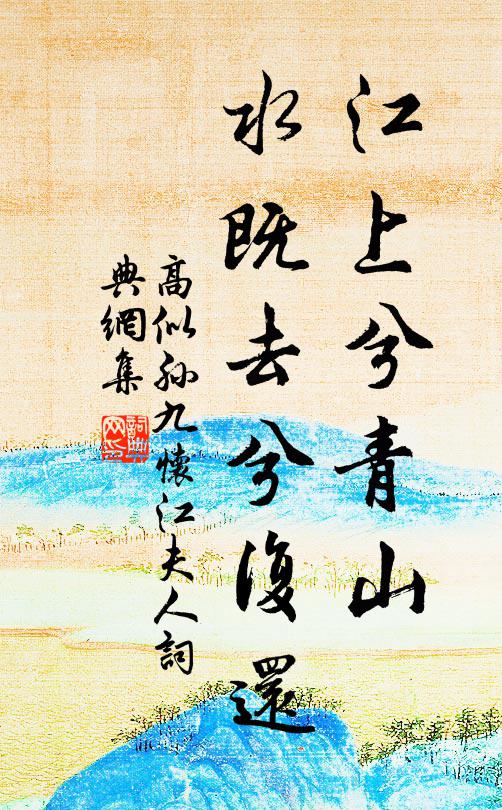 江上兮青山
水既去兮復還
高似孙九懷江夫人詞
典網集
詞典网印